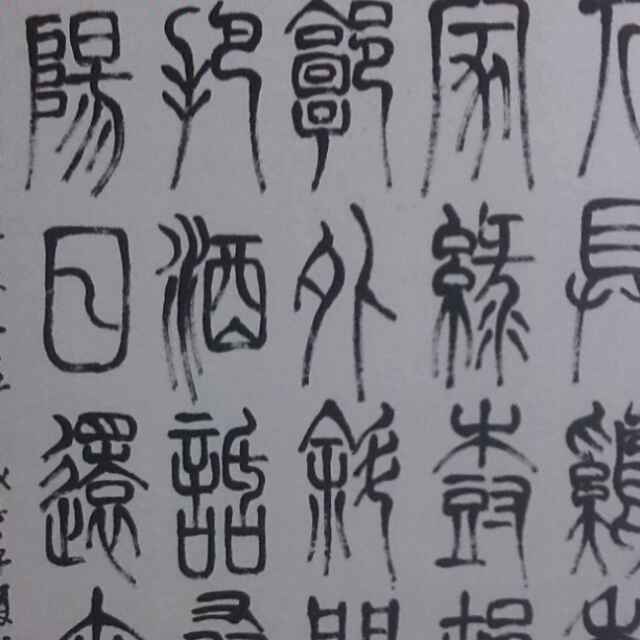 人具鷄
家綠樹
郭外斜開
把酒話桑
陽日還來